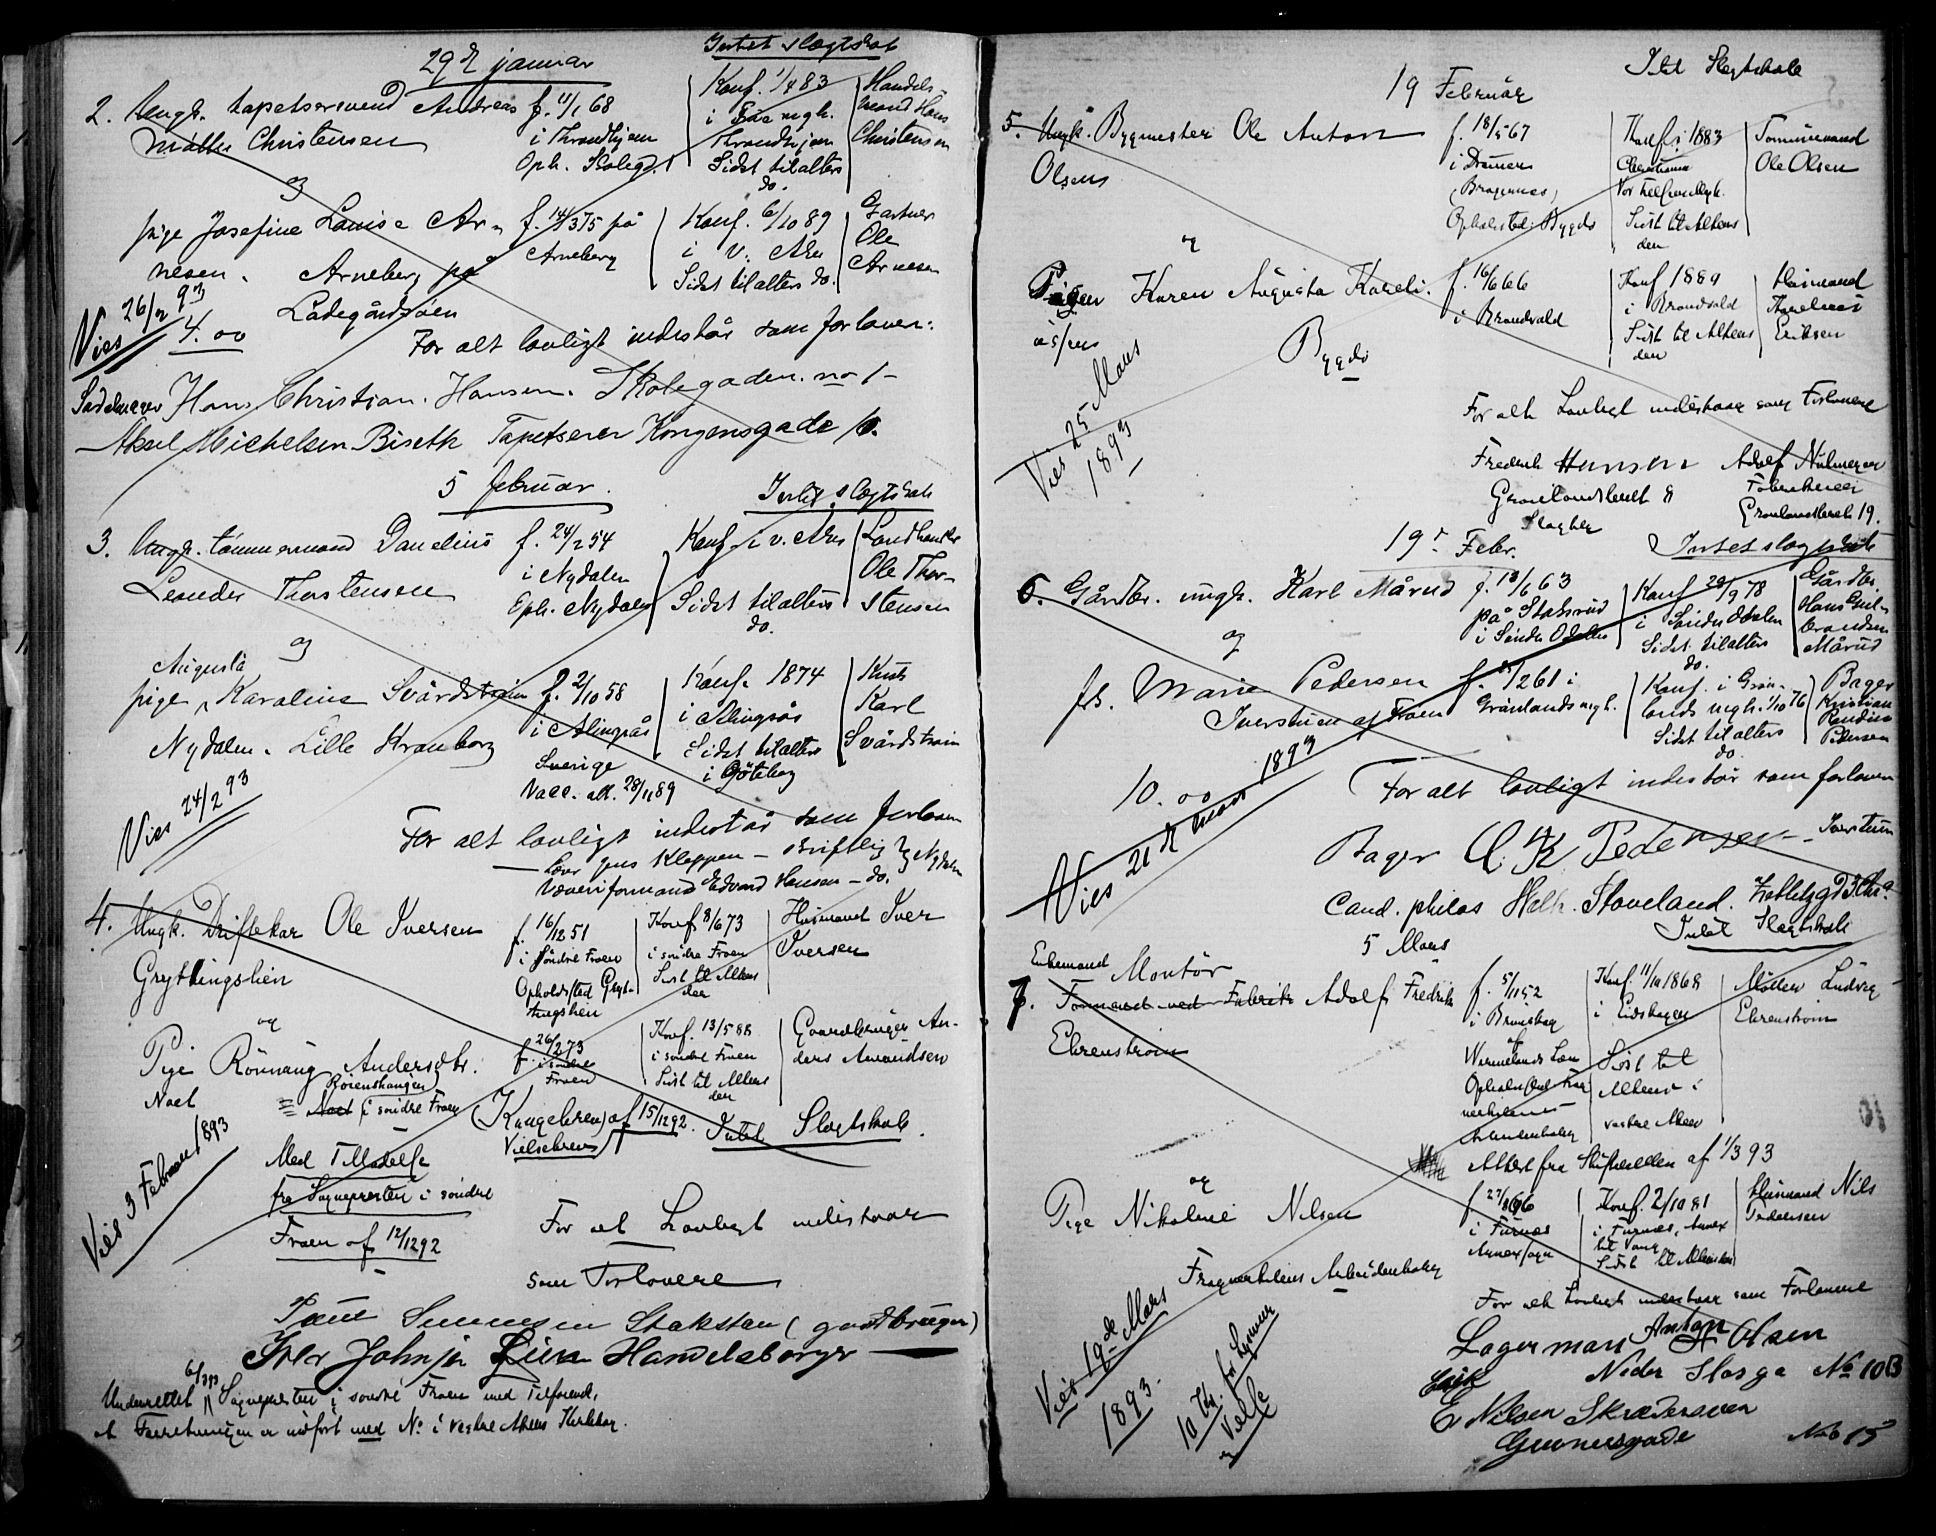 29de januar
Intet slægtskab
2. Ungk. tapetsersvend Andreas
Møller Christensen
f. 11/1 68
i Throndhjem
Oph. Skoleg. 1
Konf. 1/4 83
i Frue mgh.
Throndhjem
Sidst tilalters
do.
Handels-
mand Hans
Christensen
og
pige Josefine Louise Ar-
nesen. Arneberg på
Ladegårdsøen
f. 14/3 75 på
Arneberg
Konf. 6/10 89
i V. Aker
Sidst tilalters do.
Gartner
Ole
Arnesen
Vies 26/2 93
4.00
For alt lovligt indestår som forlovere:
Sadelmager Hans Christian Hansen. Skolegaden no 1
Aksel Michelsen Biseth Tapetserer Kongensgade 10.
5 februar.
Intet slægtskab
3. Ungk. tømmermand Danelius
Leander Thorstensen
f. 24/2 54
i Nydalen
Oph. Nydalen
Konf. i v. Aker
Sidst tilalters
do.
Landhandler
Ole Thor-
stensen
og
Augusta
pige Karoline Svärdström
Nydalen. Lille Kronborg
f. 2/10 58
i Alingsås
Sverige
Vacc. att. 28/11 89
Konf. 1874
i Alingsås
Sidst tilalters
i Göteborg
Knut
Karl
Svärdström
Vies 24/2 93
For alt lovligt indestår som forlovere
Lærer Jens Kleppen - skriftlig
Væveriformand Edvard Hansen - do. Nydalen
4. Ungk. Driftekar Ole Iversen
Grytlingslien
f. 16/12 51
i søndre Froen
Opholdssted Gryt-
lingslien
Konf 8/6 73
i søndre Froen
Sidst til Alters
der
Husmand Iver
Iversen
og
Pige Rønnaug Andersdtr.
f. 26/2 73
i søndre
Froen
Konf. 13/5 88
i søndre Froen
Sidst til Alters
der
Gaardbruger An-
ders Amundsen
i søndre Froen
af 15/12 92. Intet Slægtskab.
Vielsebrev
Vies 3 Februar 1893
Med Tilladelse
fra Sognepresten i søndre
Froen af 12/12 92
For alt Lovligt indestaar
som Forlovere
Stakstan (gardbruger)
Iver Johnsen Lien Handelsborger
6/3 93
Underrettet Sognepresten i søndre Froen med Tilføiende,
at Forretningen er indført med No i vestre Akers Kirkebog.
19 Februar
Intet Slægtskab
5. Ungk. Bygmester Ole Anton
Olsen
f. 18/5 67
i Drammen
(Bragernes)
Opholdssted: Bygdø
Konf. 1883
Christiania
Vor Frelsers Mgk.
Sidst til Alters
der
Tømmermand
Ole Olsen
og
Pigen Karen Augusta Kareli-
ussen
Bygdø
f. 16/6 66
i Brandvald
Konf 1889
i Brandvald
Sidst til Alters
der
Husmand
Eriksen
Vies 25 Mars
1893
For alt Lovligt indestaar som Forlovere
Fredrik Hansen
Grønlandsleret 8
Slagter
Adolf
Grønlandsleret 19.
19de Febr.
Intet slægtskab
6. Gårdbr. ungk. Karl Mårud
f. 13/1 63
på Staksrud
i Søndre Odalen
Konf 29/9 78
i Søndre Odalen
Sidst tilalters
do.
Gårdbr.
Hans Gul-
brandsen
Mårud
og
frk. Marie Pedersen
Iverstuen af Froen
f. /2 61 i
Grønlands mgh.
Konf. i Grøn-
lands mgh. 1/10 76
Sidst tilalters
do.
Bager
Kristian
Pedersen
10.00
Vies 21de mars 1893
For alt lovligt indestår som forlovere
Bager Pedersen - Iverstuen
Cand. philos Halk. Staveland.
5 Mars
Intet Slægtskab
Enkemand Montør
7. Formand ved Fabrik Adolf Fredrik
Ehrenstrøm
f. 5/11 52
i Brunskog
af
Wermelands Len
Opholdssted Frog-
nerkilens
Arbeiderbolig
Konf. 11/10 1868
i Eidskogen
Sidst til
Alters i
vestre Aker
Møller Ludvig
Ehrenstrøm
Attest fra Skifteretten af 1/3 93
og
Pige Nikoline Nilsen
Frognerkilens Arbeiderbolig
f. 27/8 66
i Furnes
Annexsogn
Konf. 2/10 81
i Furnes, Annex
til Vang
Sidst til Alters der
Husmand Nils
Pedersen
Vies 19de Mars
1893.
10 Kr. for
og Vielse
For alt Lovligt indestaar som Forlovere
Lagermand Anton Olsen
Neder Slotsga No 10B
E Nilsen Skrædersven
Grunersgade No 15